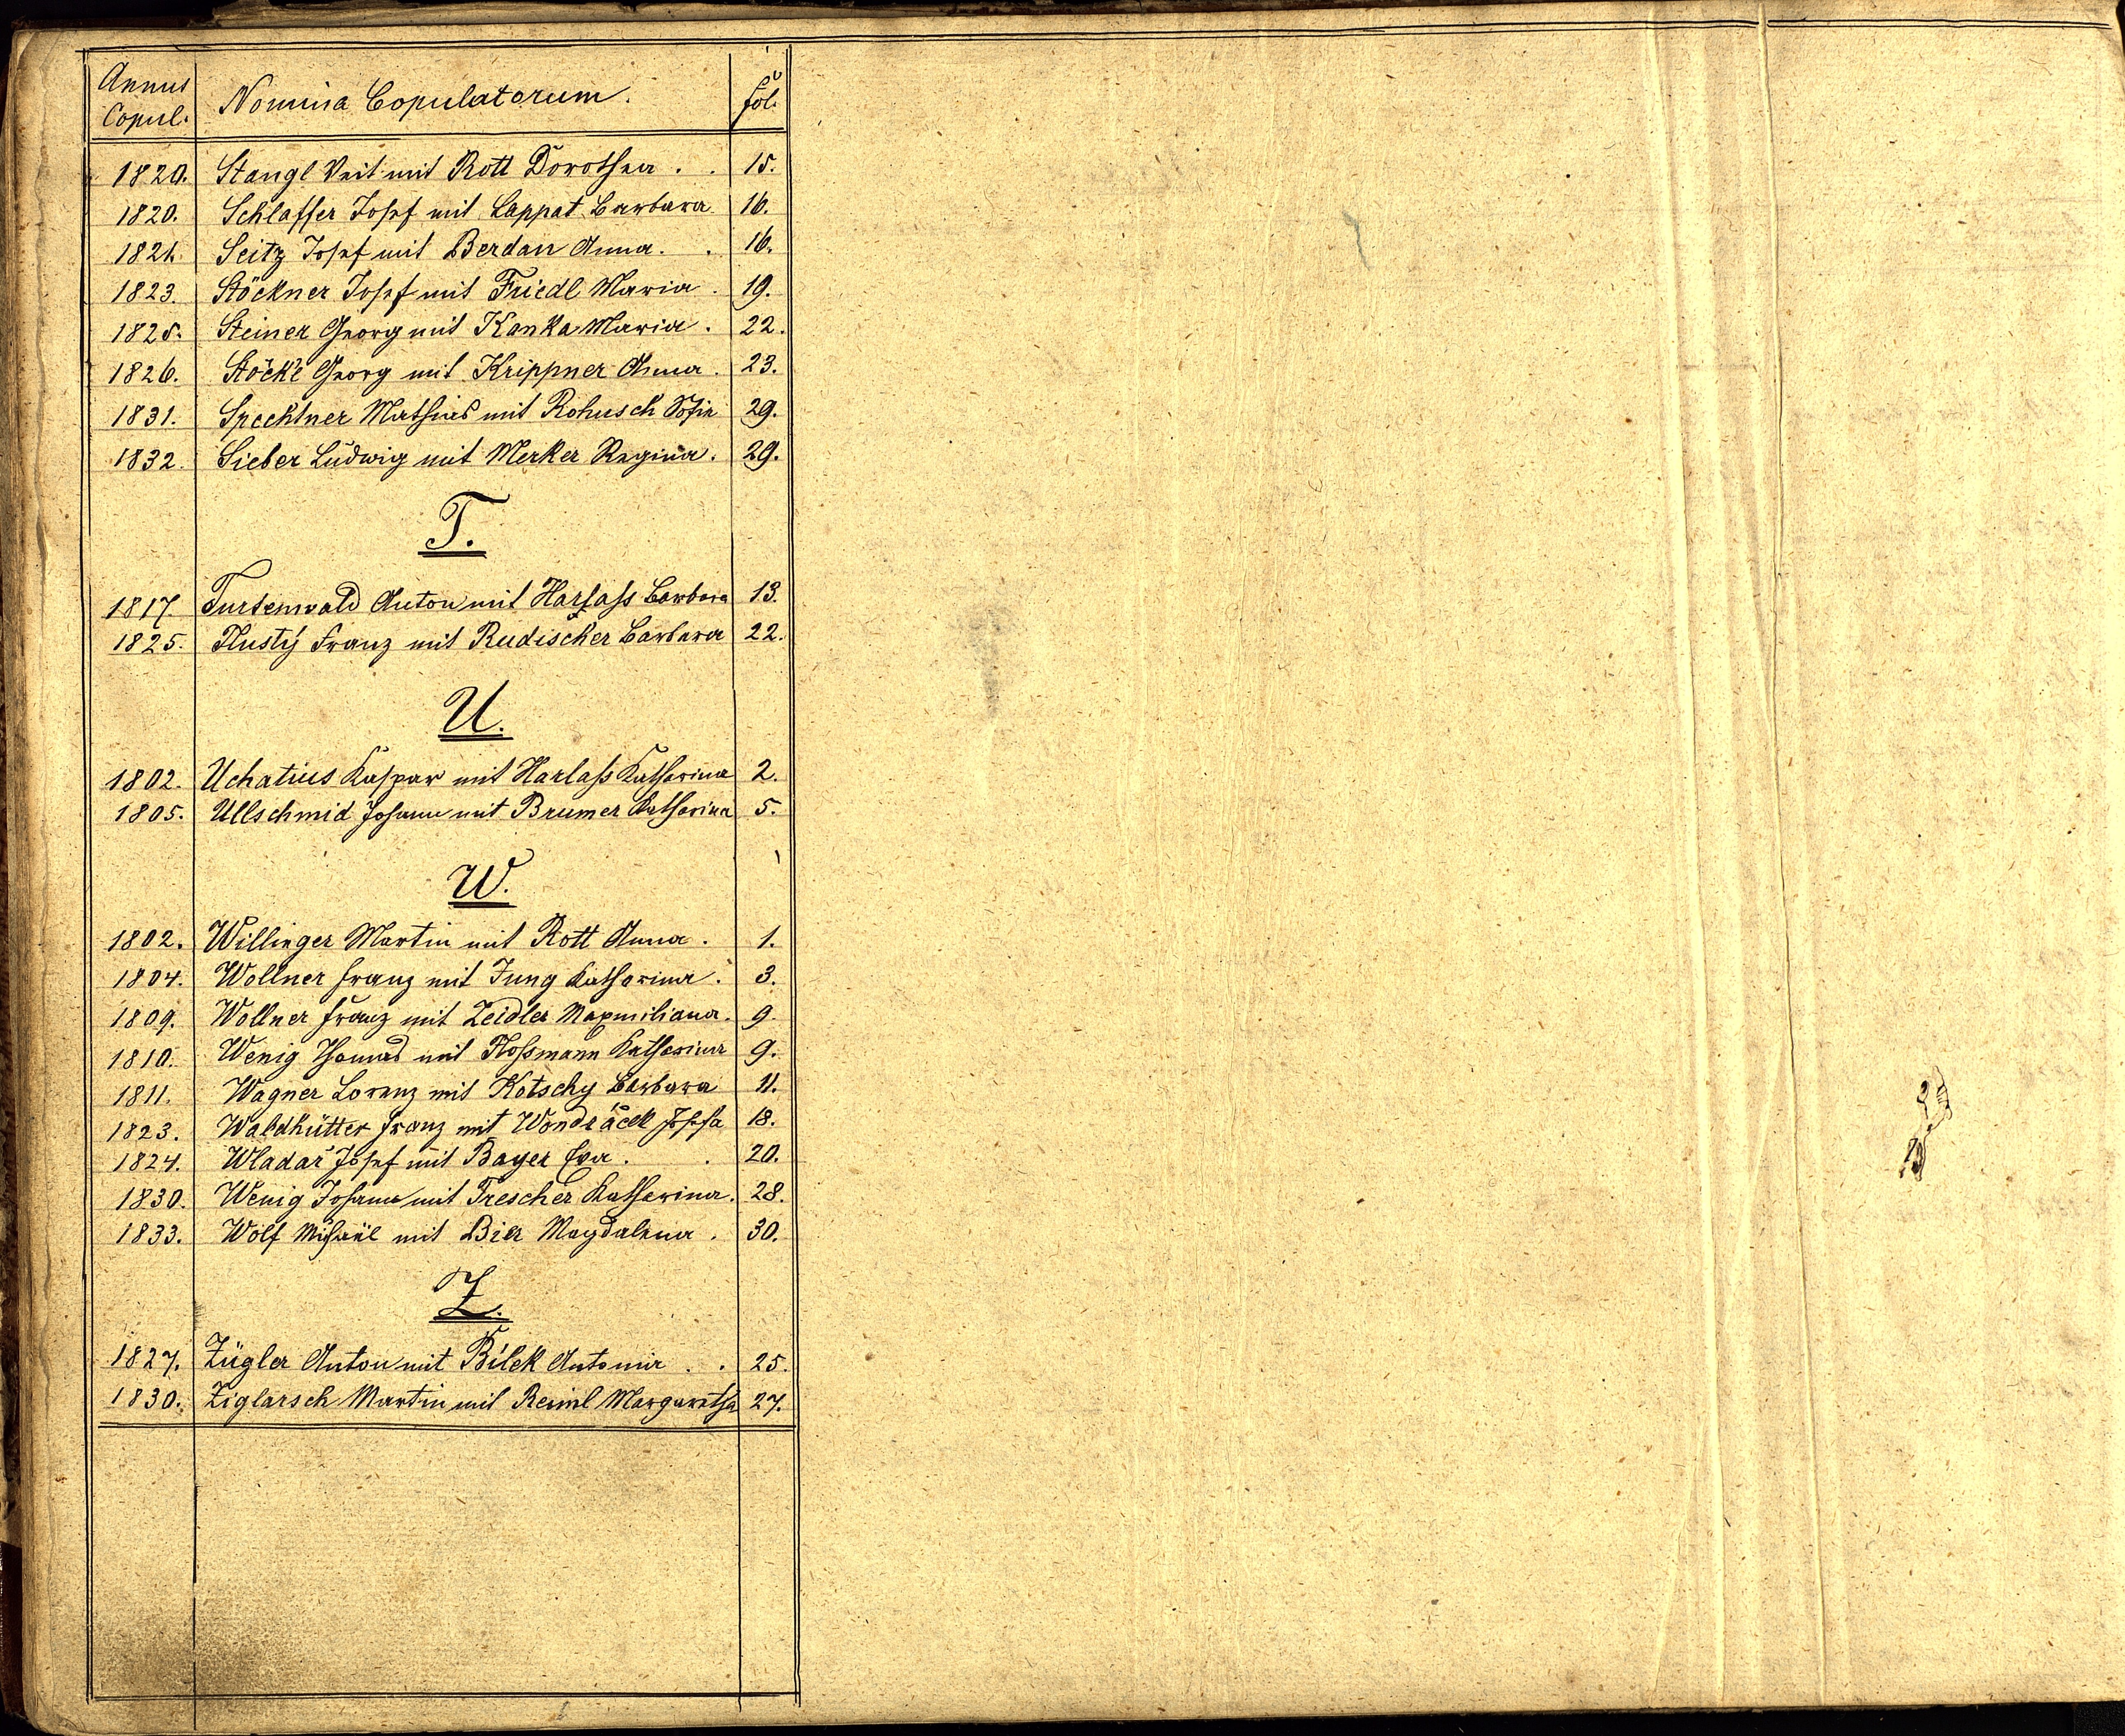 Annus Copul. Nomina Copulatorum. fol.
1820. Stangl Veit mit Rott Dorothea . . 15.
1820. Schlaffer Josef mit Lappat Barbara 16.
1821. Seitz Josef mit Berdan Anna. . 16.
1823. Stöckner Josef mit Friedl Maria . 19.
1825. Steiner Georg mit Kanka Maria . 22.
1826. Stöckl Georg mit Krippner Anna . 23.
1831. Spechtner Mathias mit Rohusch Sofia 29.
1832. Sieber Ludwig mit Merker Regina . 29.
T.
1817. Turtenwald Anton mit Harlaß Barbara 13.
1825. Tlustý Franz mit Rudischer Barbara 22.
U.
1802. Uchatius Kaspar mit Harlaß Katharina 2.
1805. Ullschmid Johann mit Brumer Katharina 5.
W.
1802. Willinger Martin mit Rott Anna . 1.
1804. Wollner Franz mit Jung Katharina . 3.
1809. Wollner Franz mit Zeidler Maxmiliana. 9.
1810. Wenig Thomas mit Floßmann Katharina 9.
1811. Wagner Lorenz mit Kotschy Barbara 11.
1823. Waldhütter Franz mit Wondráček Josefa 18.
1824. Wladař Josef mit Bayer Eva . . 20.
1830. Wenig Johann mit Trescher Katharina. 28.
1833. Wolf Michael mit Bier Magdalena . 30.
Z.
1827. Zügler Anton mit Bílek Antonia . . 25.
1830. Ziglarsch Martin mit Reiml Margaretha 27.